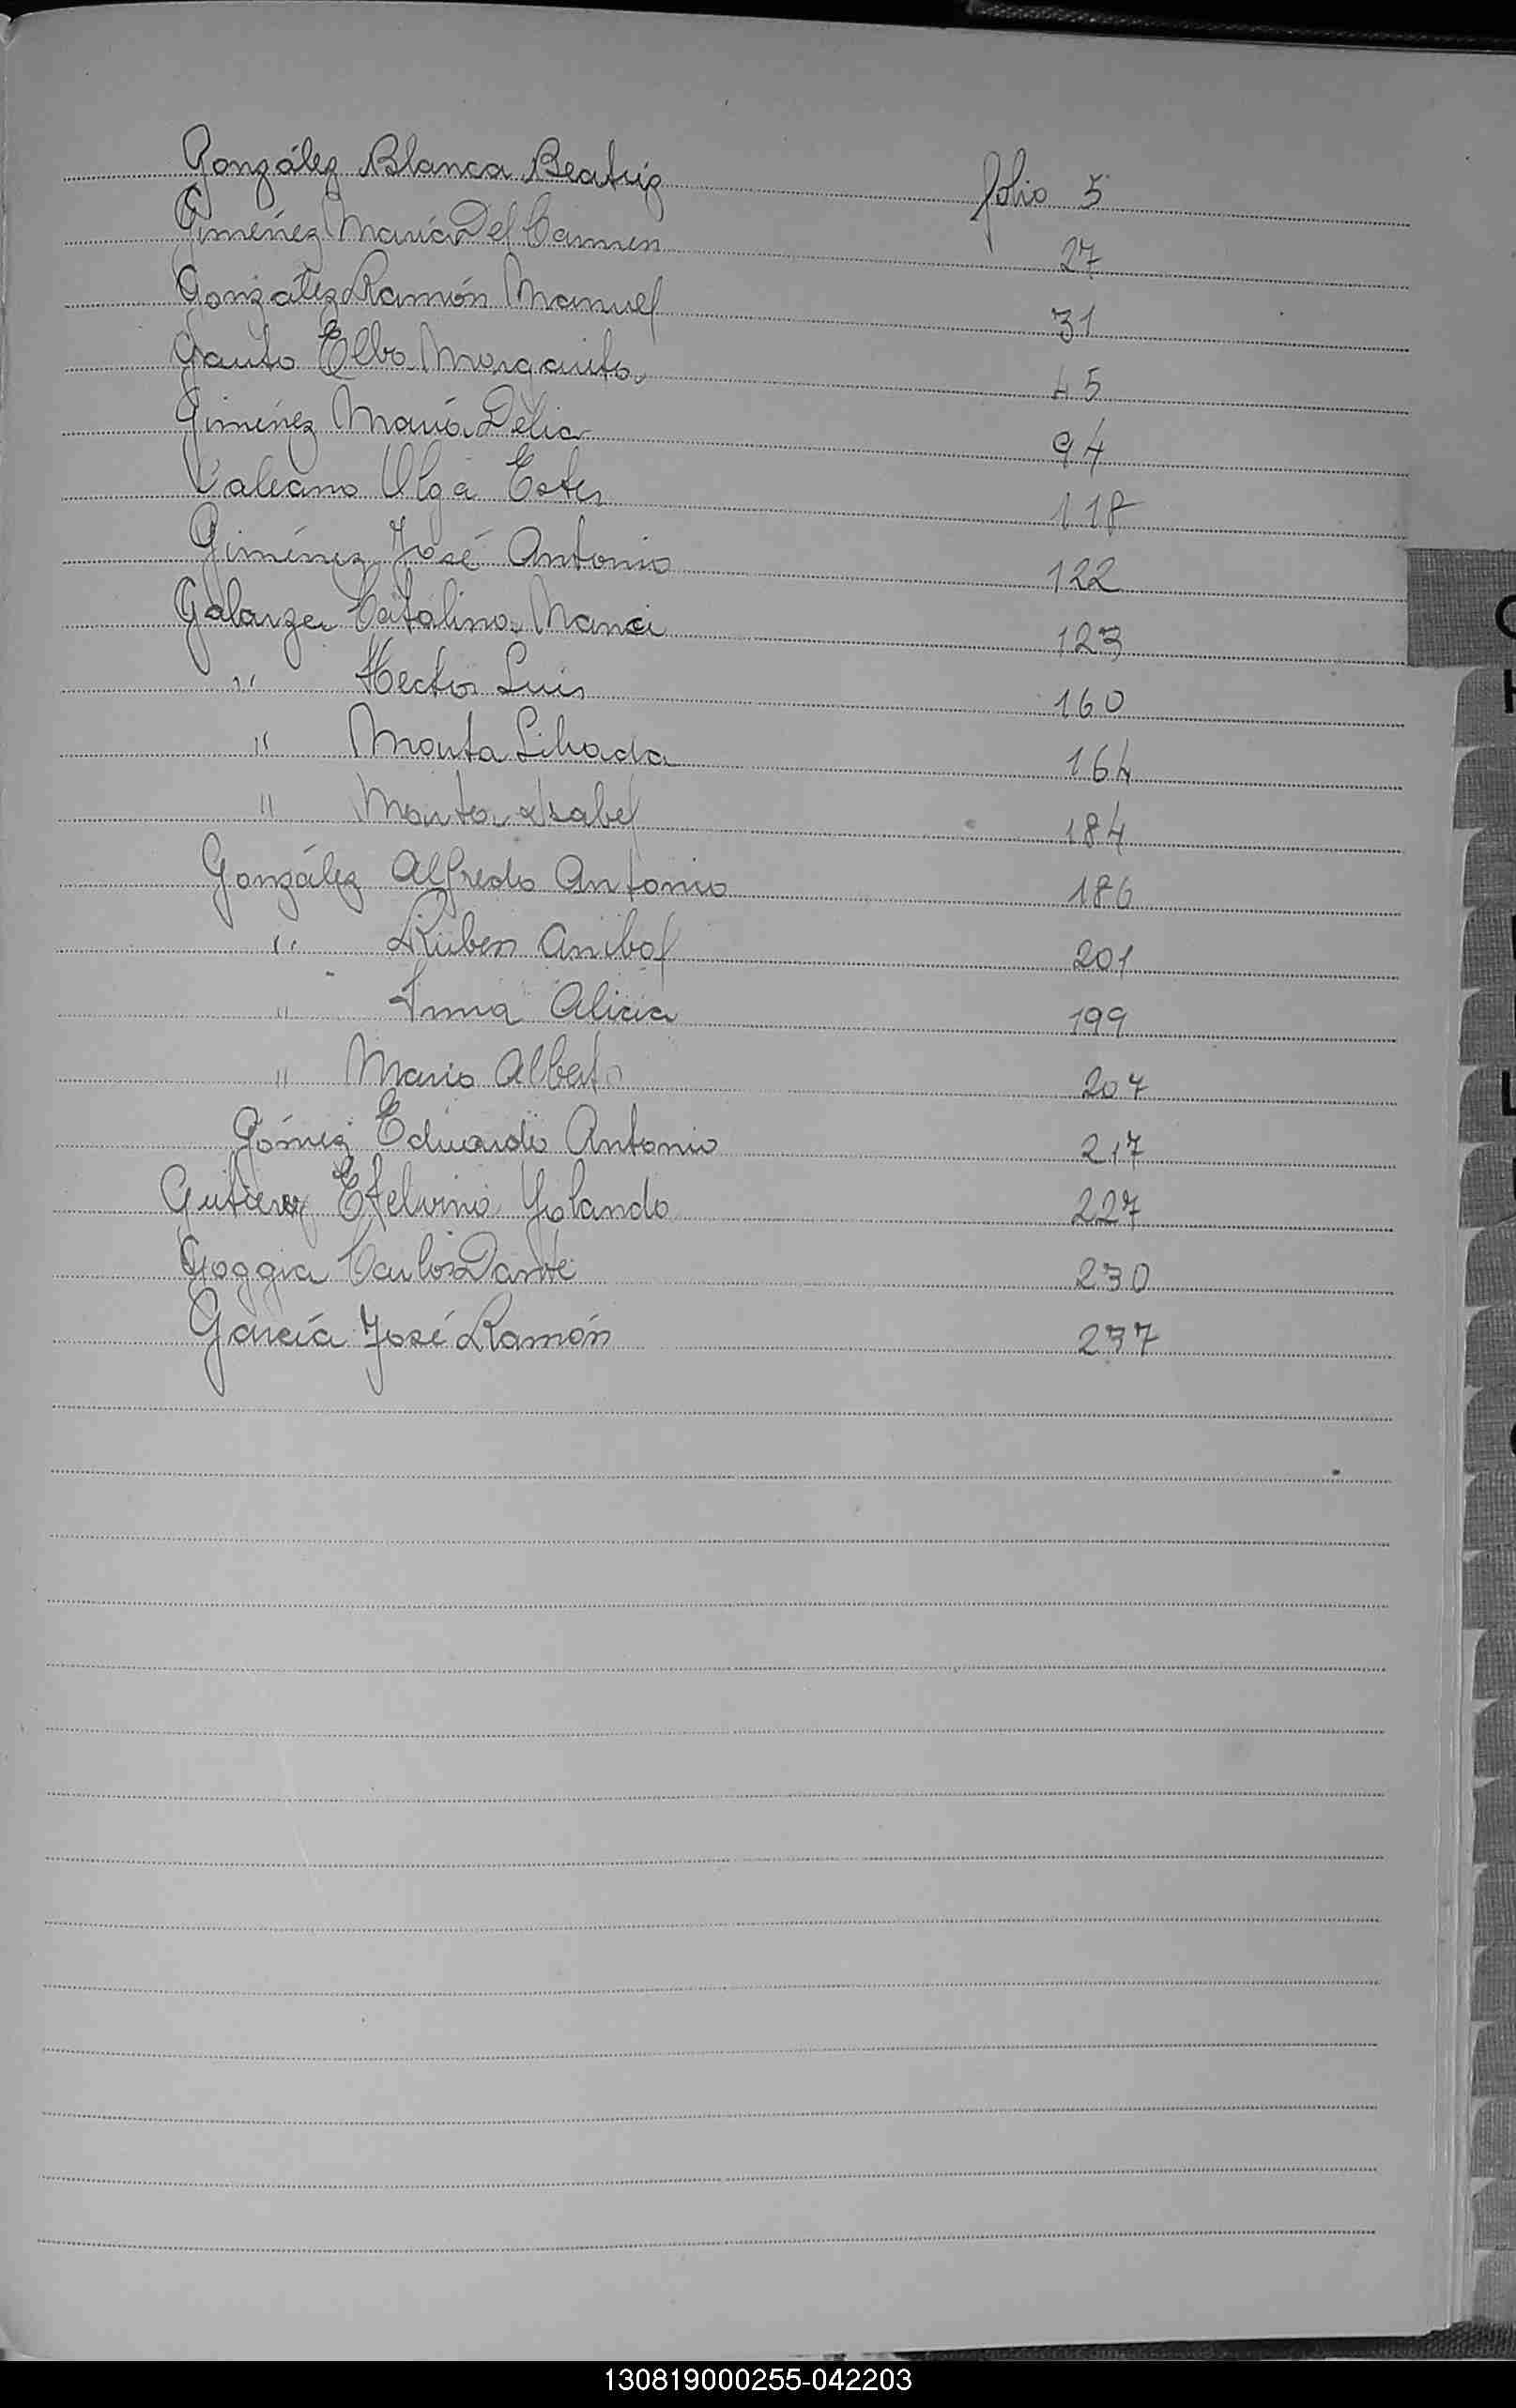 González Blanca Beatriz folio 5
Giménez María Del Carmen 27
González Ramón Manuel 31
Gauto Elba Margarita 45
Giménez María Delia 94
Galeano Olga Ester 118
Giménez José Antonio 122
Galarza Catalina Nanci 123
" Hector Luis 160
" Marta Librada 164
" Marta Isabel 184
González Alfredo Antonio 186
" Ruben Anibal 201
" Irma Alicia 199
" Mario Alberto 207
Gómez Eduardo Antonio 217
Gutierrez Etelvina Yolanda 227
Goggia Carlos Dante 230
García José Ramón 237
L
130819000255-042203